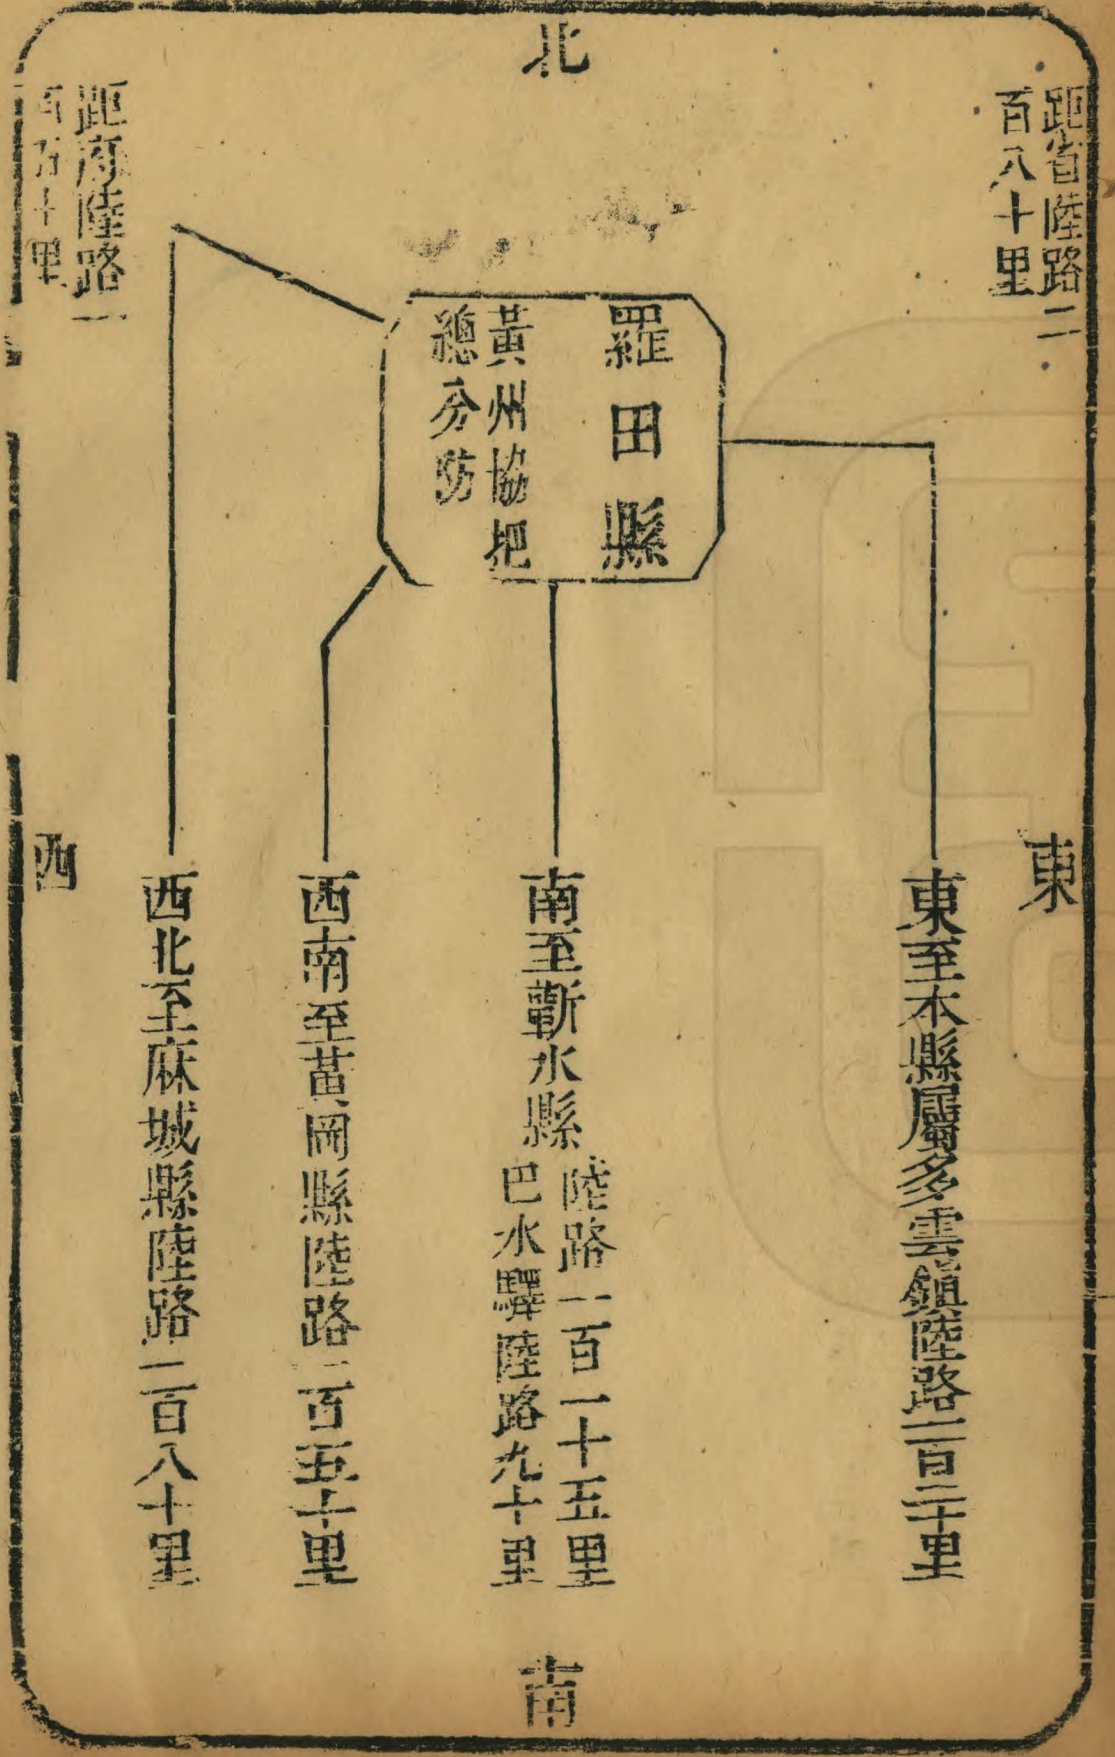 北
距省陸路二
百八十里
距府陸路一
百五十里
羅田縣
黃州協把
總分防
東
東至本縣屬多雲鎮陸路一百二十里
南至蘄水縣
陸路一百一十五里
巴水驛陸路九十里
西南至黃岡縣陸路一百五十里
西北至麻城縣陸路一百八十里
西
南